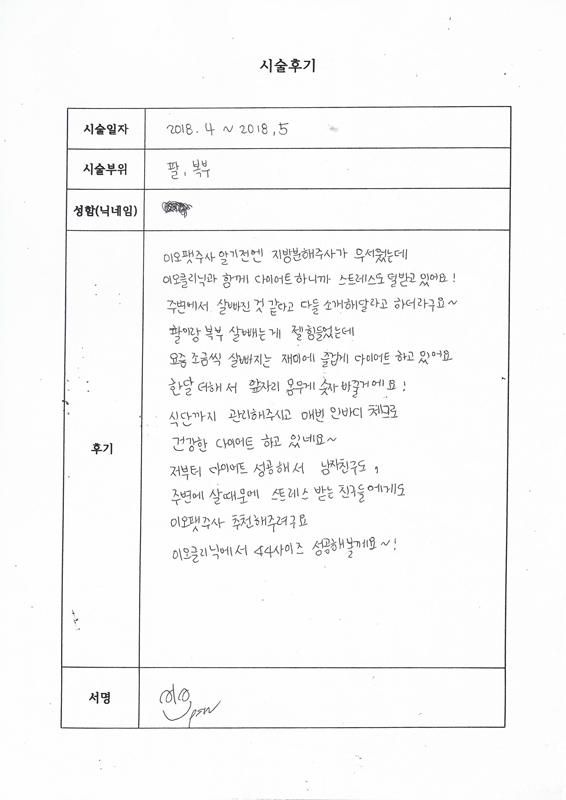 시술후기
시술일자 2018. 4 ~ 2018. 5
시술부위 팔, 복부
성함(닉네임)
후기
이오팻주사 알기전엔 지방분해주사가 무서웠는데
이오클리닉과 함께 다이어트 하니까 스트레스도 덜받고 있어요!
주변에서 살빠진 것 같다고 다들 소개해달라고 하더라구요~
팔이랑 복부 살빼는게 젤 힘들었는데
요즘 조금씩 살빠지는 재미에 즐겁게 다이어트 하고 있어요
한달 더해서 앞자리 몸무게 숫자 바꿀거에요!
식단까지 관리해주시고 매번 인바디 체크로
건강한 다이어트 하고 있네요~
저부터 다이어트 성공해서 남자친구도,
주변에 살때문에 스트레스 받는 친구들에게도
이오팻주사 추천해주려구요
이오클리닉에서 44사이즈 성공해볼께요~!
서명